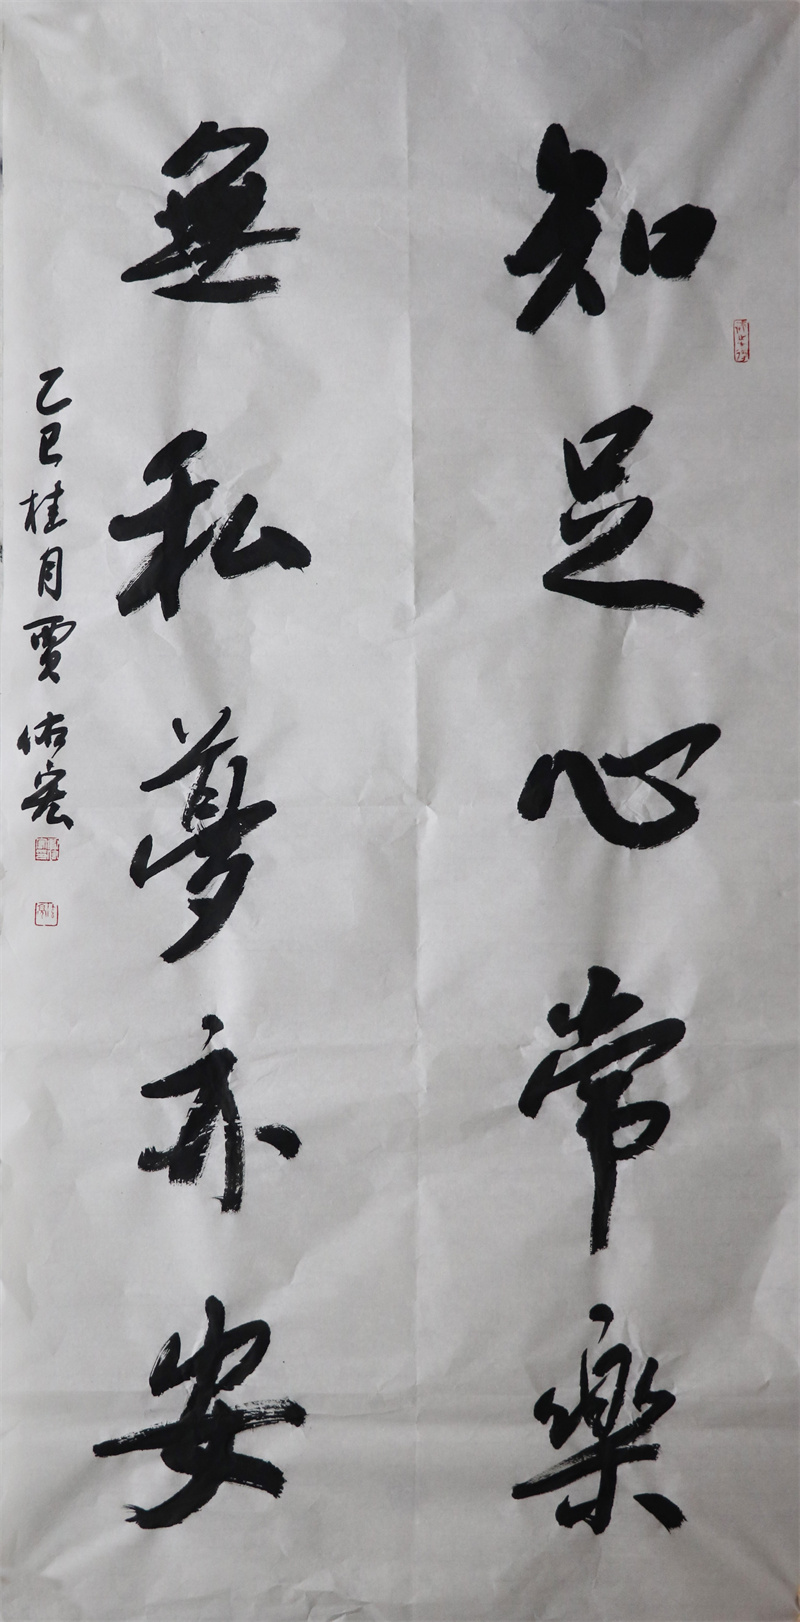 知足心常樂
無私夢亦安
乙巳桂月賈佑宏